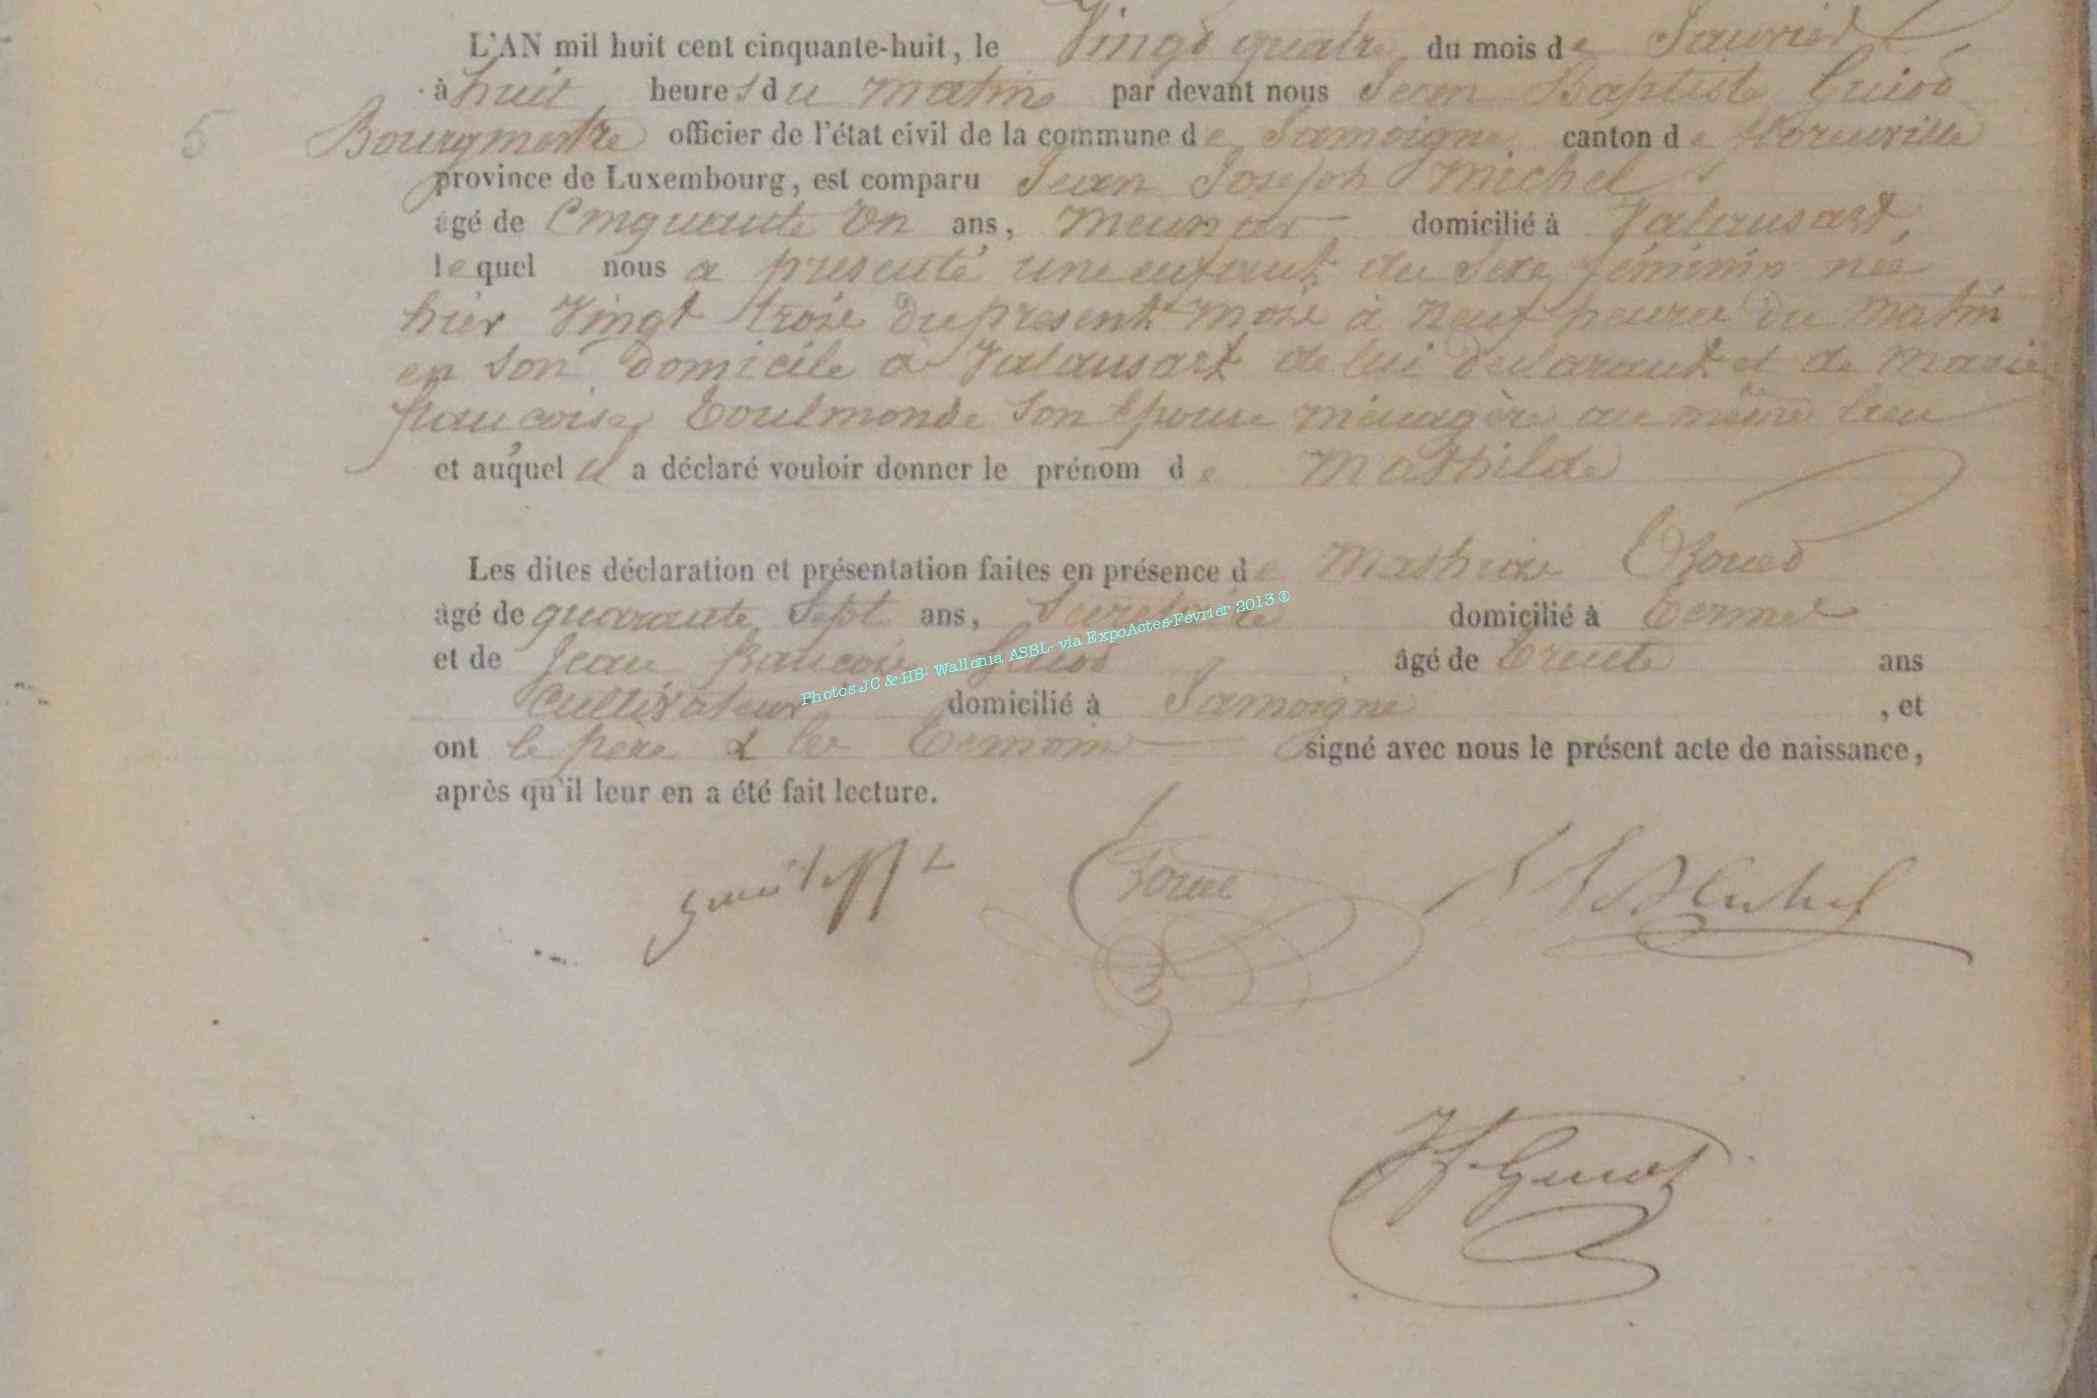 L'AN mil huit cent cinquante-huit, le Vingt quatre du mois de Janvier
à huit heures du matin par devant nous Jean Baptiste Guiot
5 Bourgmestre officier de l'état civil de la commune de Jamoigne canton de Florenville
province de Luxembourg, est comparu Jean Joseph Michel
âgé de Cinquante un ans, meunier domicilié à Valansart,
lequel nous a presenté une enfant du Sexe féminin née
hier Vingt trois du present mois à neuf heures du matin
en son domicile a Valansart de lui declarant et de Marie
françoise Toulmonde son Epouse ménagère au même lieu
et auquel il a déclaré vouloir donner le prénom de Mathilde
Les dites déclaration et présentation faites en présence de
âgé de quarante Sept ans, Secretaire domicilié à Termes
et de Jean françois Guiot âgé de trente ans
Cultivateur domicilié à Jamoigne , et
ont le pere & les Temoins signé avec nous le présent acte de naissance,
après qu'il leur en a été fait lecture.
Photos JC & HB- Wallonia ASBL- via ExpoActes-Février 2013 ®
JJ Michel
Guiot